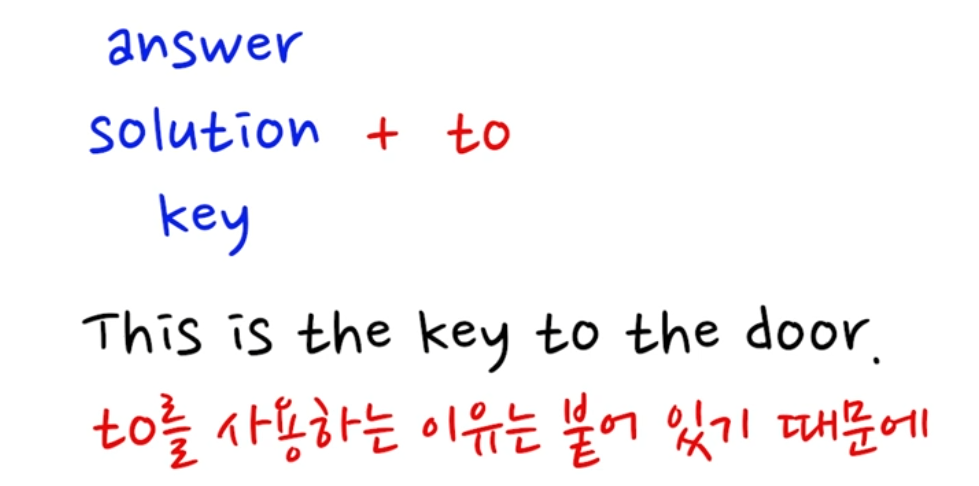 answer
solution + to
key
This is the key to the door.
to를 사용하는 이유는 붙어 있기 때문에